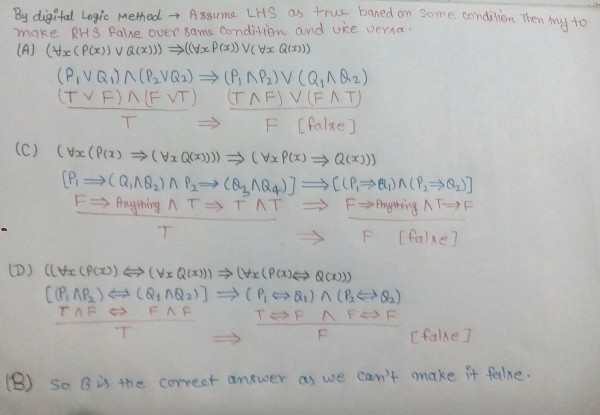 By digital Logic Method → Assume LHS as true based on some condition Then try to
make RHS False over same condition and vice versa.
(A) (∀x(P(x)) ∨ Q(x))) ⇒ ((∀x P(x)) ∨ (∀x Q(x)))
(P₁ ∨ Q₁) ∧ (P₂ ∨ Q₂) ⇒ (P₁ ∧ P₂) ∨ (Q₁ ∧ Q₂)
(T ∨ F) ∧ (F ∨ T) (T ∧ F) ∨ (F ∧ T)
T ⇒ F [false]
(C) (∀x(P(x) ⇒ (∀x Q(x)))) ⇒ (∀x P(x) ⇒ Q(x)))
[P₁ ⇒ (Q₁∧Q₂) ∧ P₂ ⇒ (Q₃∧Q₄)] ⇒ [(P₁⇒Q₁)∧(P₂⇒Q₂)]
F ⇒ Anything ∧ T ⇒ T ∧ T ⇒ F ⇒ Anything ∧ T ⇒ F
T ⇒ F [false]
(D) ((∀x(P(x)) ⇔ (∀x Q(x))) ⇒ (∀x(P(x) ⇔ Q(x)))
[(P₁∧P₂) ⇔ (Q₁∧Q₂)] ⇒ (P₁ ⇔ Q₁) ∧ (P₂ ⇔ Q₂)
T ∧ F ⇔ F ∧ F T ⇔ F ∧ F ⇔ F
T ⇒ F [false]
(B) so B is the correct answer as we can't make it false.